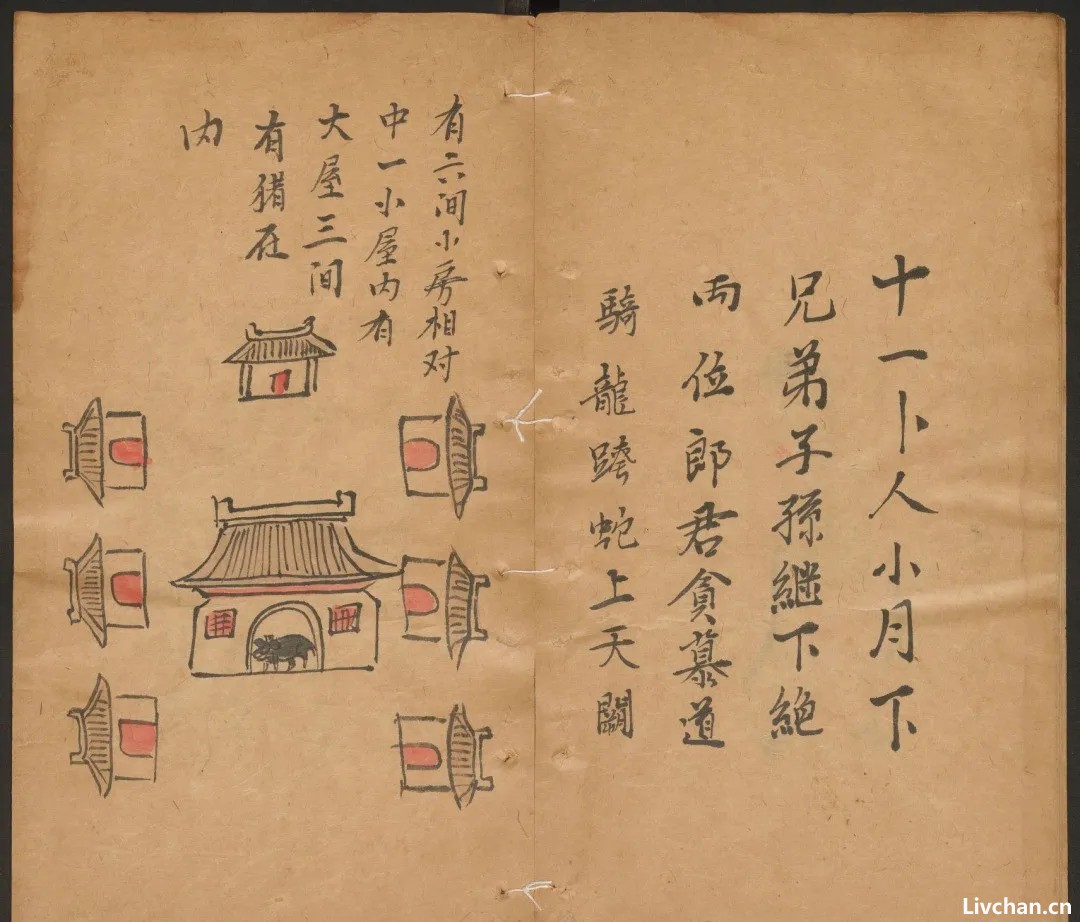 十一卜人小月下
兄弟子孫継下絶
両位郎君貪慕道
騎龍跨蛇上天闕
有六间小房相对
中一小屋内有
大屋三间
有猪在
内
Livchan.cn